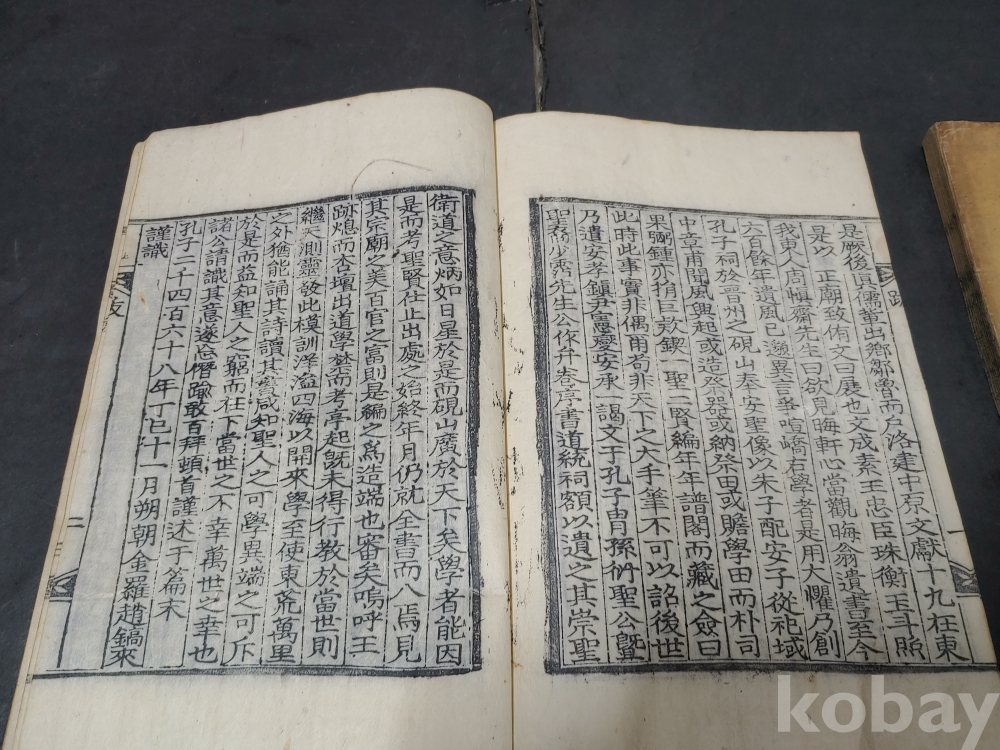 是厥後眞儒輩出鄒魯而戶洛建中京文獻十九在東
是以 正廟致侑文曰展也文成素王忠臣珠衡玉斗照
我東人周愼齋先生曰欲見晦軒心當觀晦翁遺書至今
六百餘年遺風已邈異言爭喧嶠右學者是用大懼乃創
孔子祠於晋州之硯山奉安聖像以朱子配安子從祀域
中章甫聞風興起或造祭器或納祭田或贍學田而朴司
果弼鍾亦捐巨欵鍥 聖二賢編年年譜閣而藏之僉曰
此時此事實非偶爾苟非天下之大手筆不可以詔後世
乃遣安孝鎭尹憲燮安承一謁文于孔子胄孫衍聖公曁
聖裔少秀先生公作弁卷序書道統祠額以遺之其崇聖
衛道之意炳如日星於是而硯山廣於天下矣學者能因
是而考聖賢仕止出處之始終年月仍就全書而入焉見
其宗廟之美百官之富則是編之爲造端也審矣嗚呼王
跡熄而杏壇出道學禁而考亭起旣未得行敎於當世則
繼天測靈發此模訓洋溢四海以開來學至使東荒萬里
之外猶能誦其詩讀其書咸知聖人之可學異端之可斥
於是而益知聖人之窮而在下當世之不幸萬世之幸也
諸公請識其意遂忘僭踰敢百拜頓首謹述于篇末
孔子二千四百六十八年丁巳十一月朔朝金羅趙鎬來
謹識
跋
二
kobay